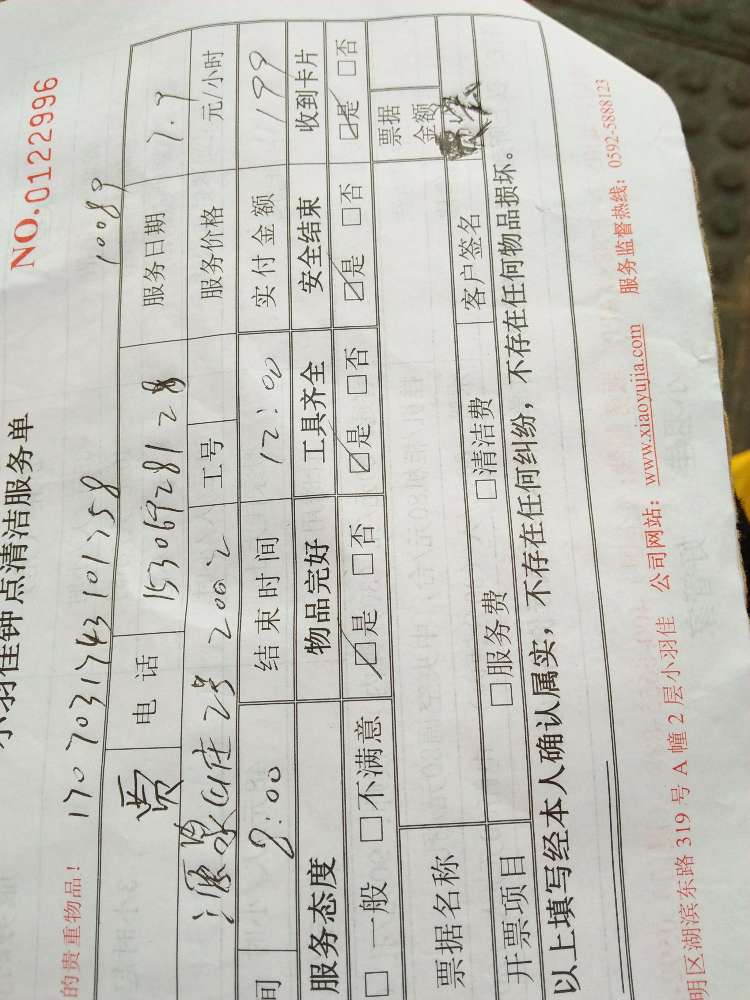 小羽佳钟点清洁服务单
NO.0122996
的贵重物品！ 1707031743101758 10089
贾 电话 15306928128 服务日期 7.9
源泉山庄2号2002 工号 服务价格 元/小时
间 9:00 结束时间 12:00 实付金额 199
服务态度 物品完好 工具齐全 安全结束 收到卡片
□ 一般 □不满意 ☑是 □否 ☑是 □否 ☑是 □否 ☑是 □否
票据名称 票据金额
开票项目 □服务费 □清洁费 客户签名
以上填写经本人确认属实，不存在任何纠纷，不存在任何物品损坏。
明区湖滨东路 319 号 A 幢 2 层小羽佳 公司网站：www.xiaoyujia.com 服务监督热线：0592-5888123